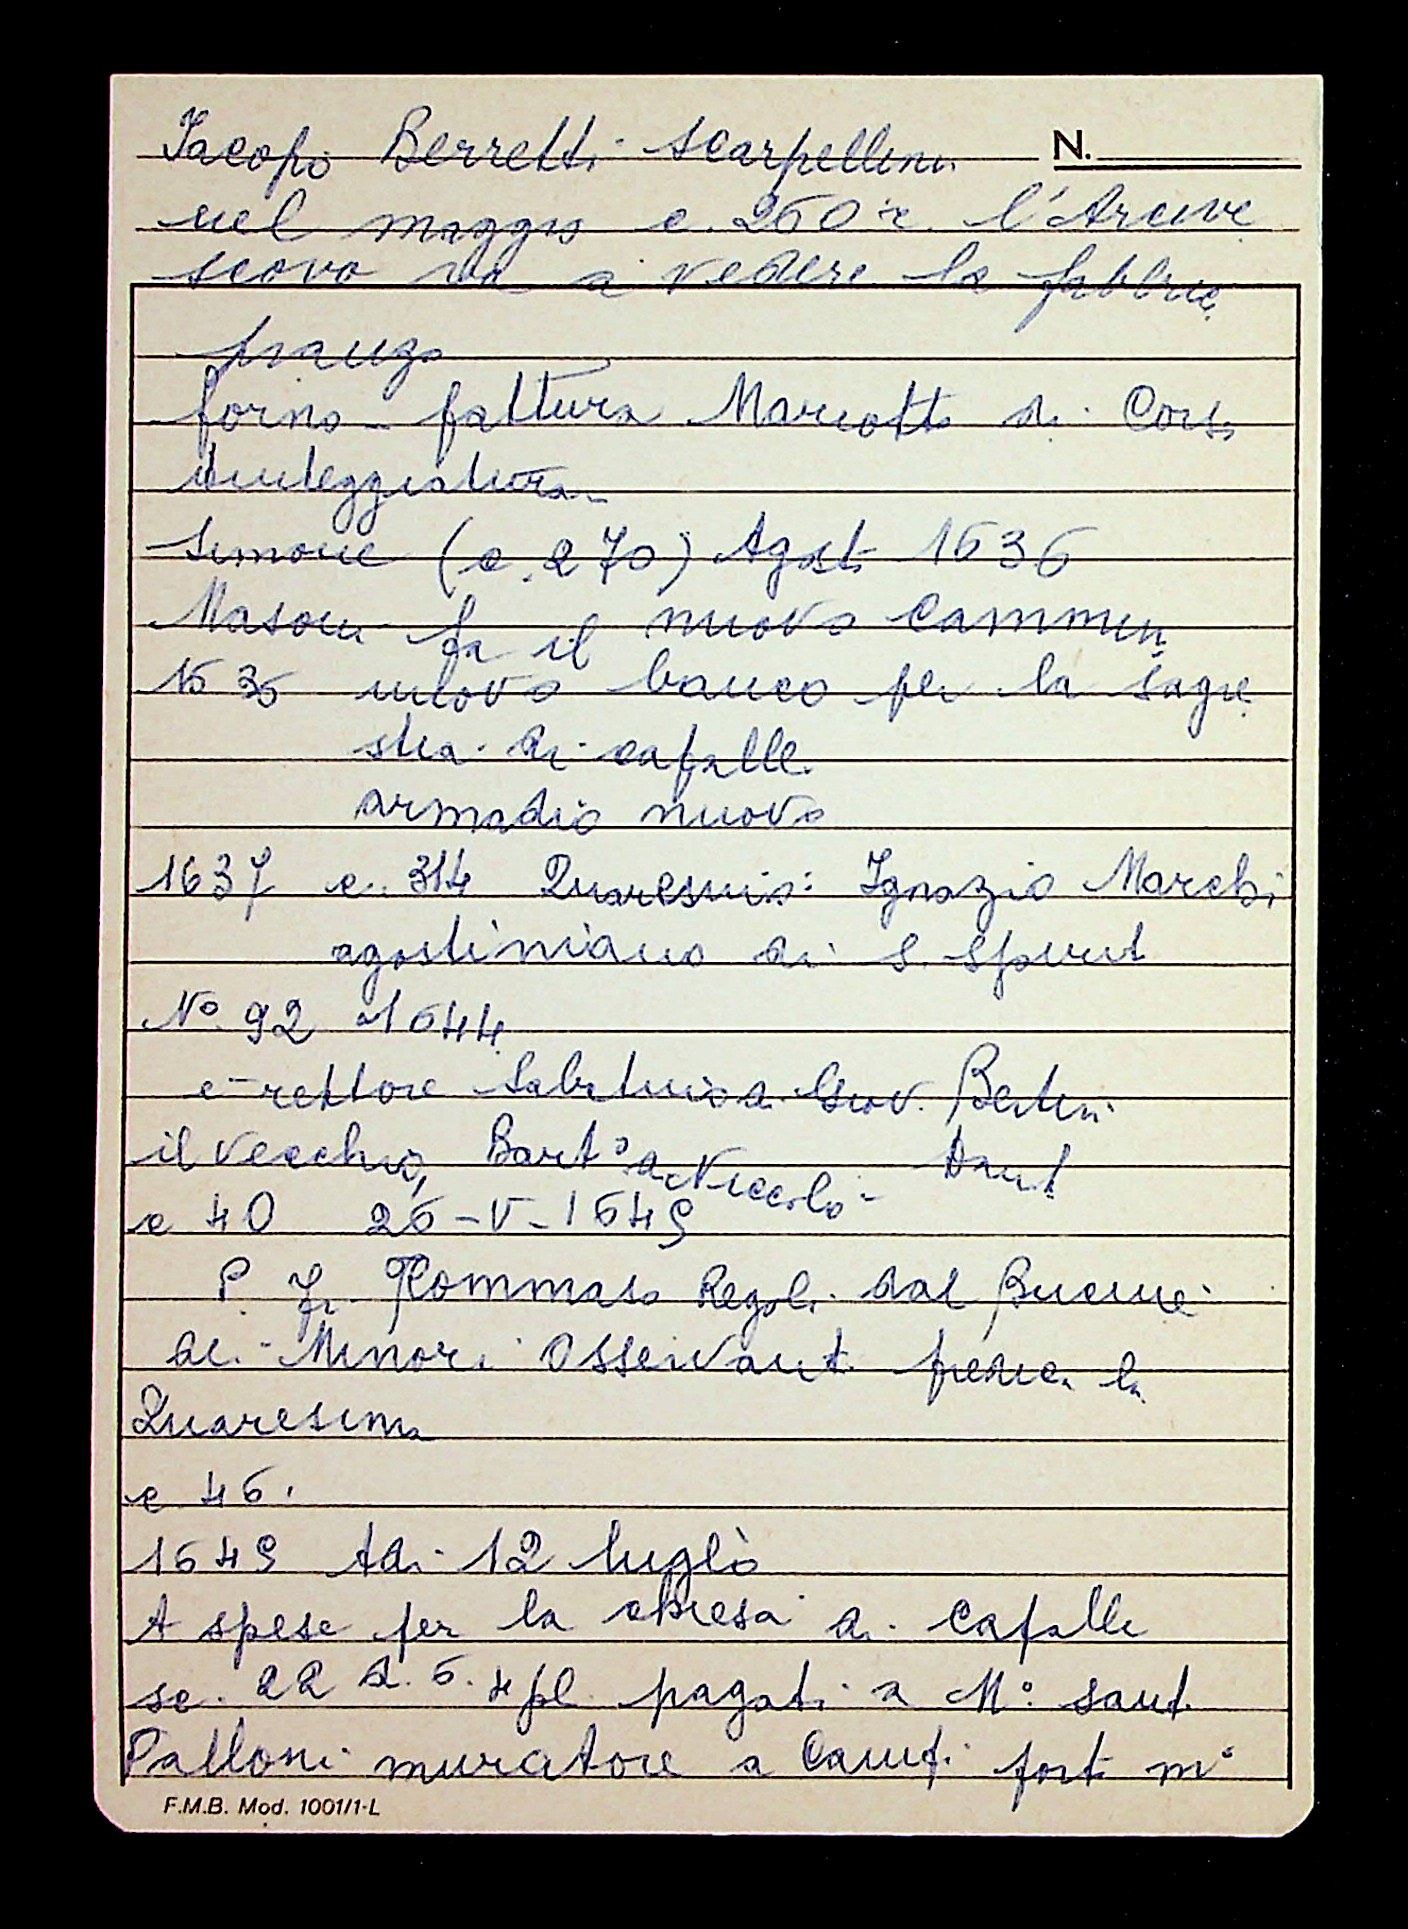 Iacopo Berretti scarpellini N.
nel maggio c. 260 r. l'Arcive
scovo va a vedere la fabbrica
pranzo
forno - fattura Mariotto di Corso
Simone (c. 270) Agosto 1636
Masoni fa il nuovo cammin
1635 nuovo banco per la sagre
stia di capalle
armadio nuovo
1637 c. 314 Quaresima: Ignazio Marchi
agostiniano di S. Spirit
N° 92 1644
c - rettore Giov. Bertini
il vecchio, Bart° di Niccolò
c 40 26-V-1649
P. fr. Tommaso Regoli dal
dei Minori Osservanti predica la
Quaresima
c 46.
1649 Adi 12 luglio
A spese per la chiesa di Capalle
sc. 22 £. 6. 4 pl. pagati a M° Santi
Palloni muratore a Campi porto m°
F.M.B. Mod. 1001/1-L